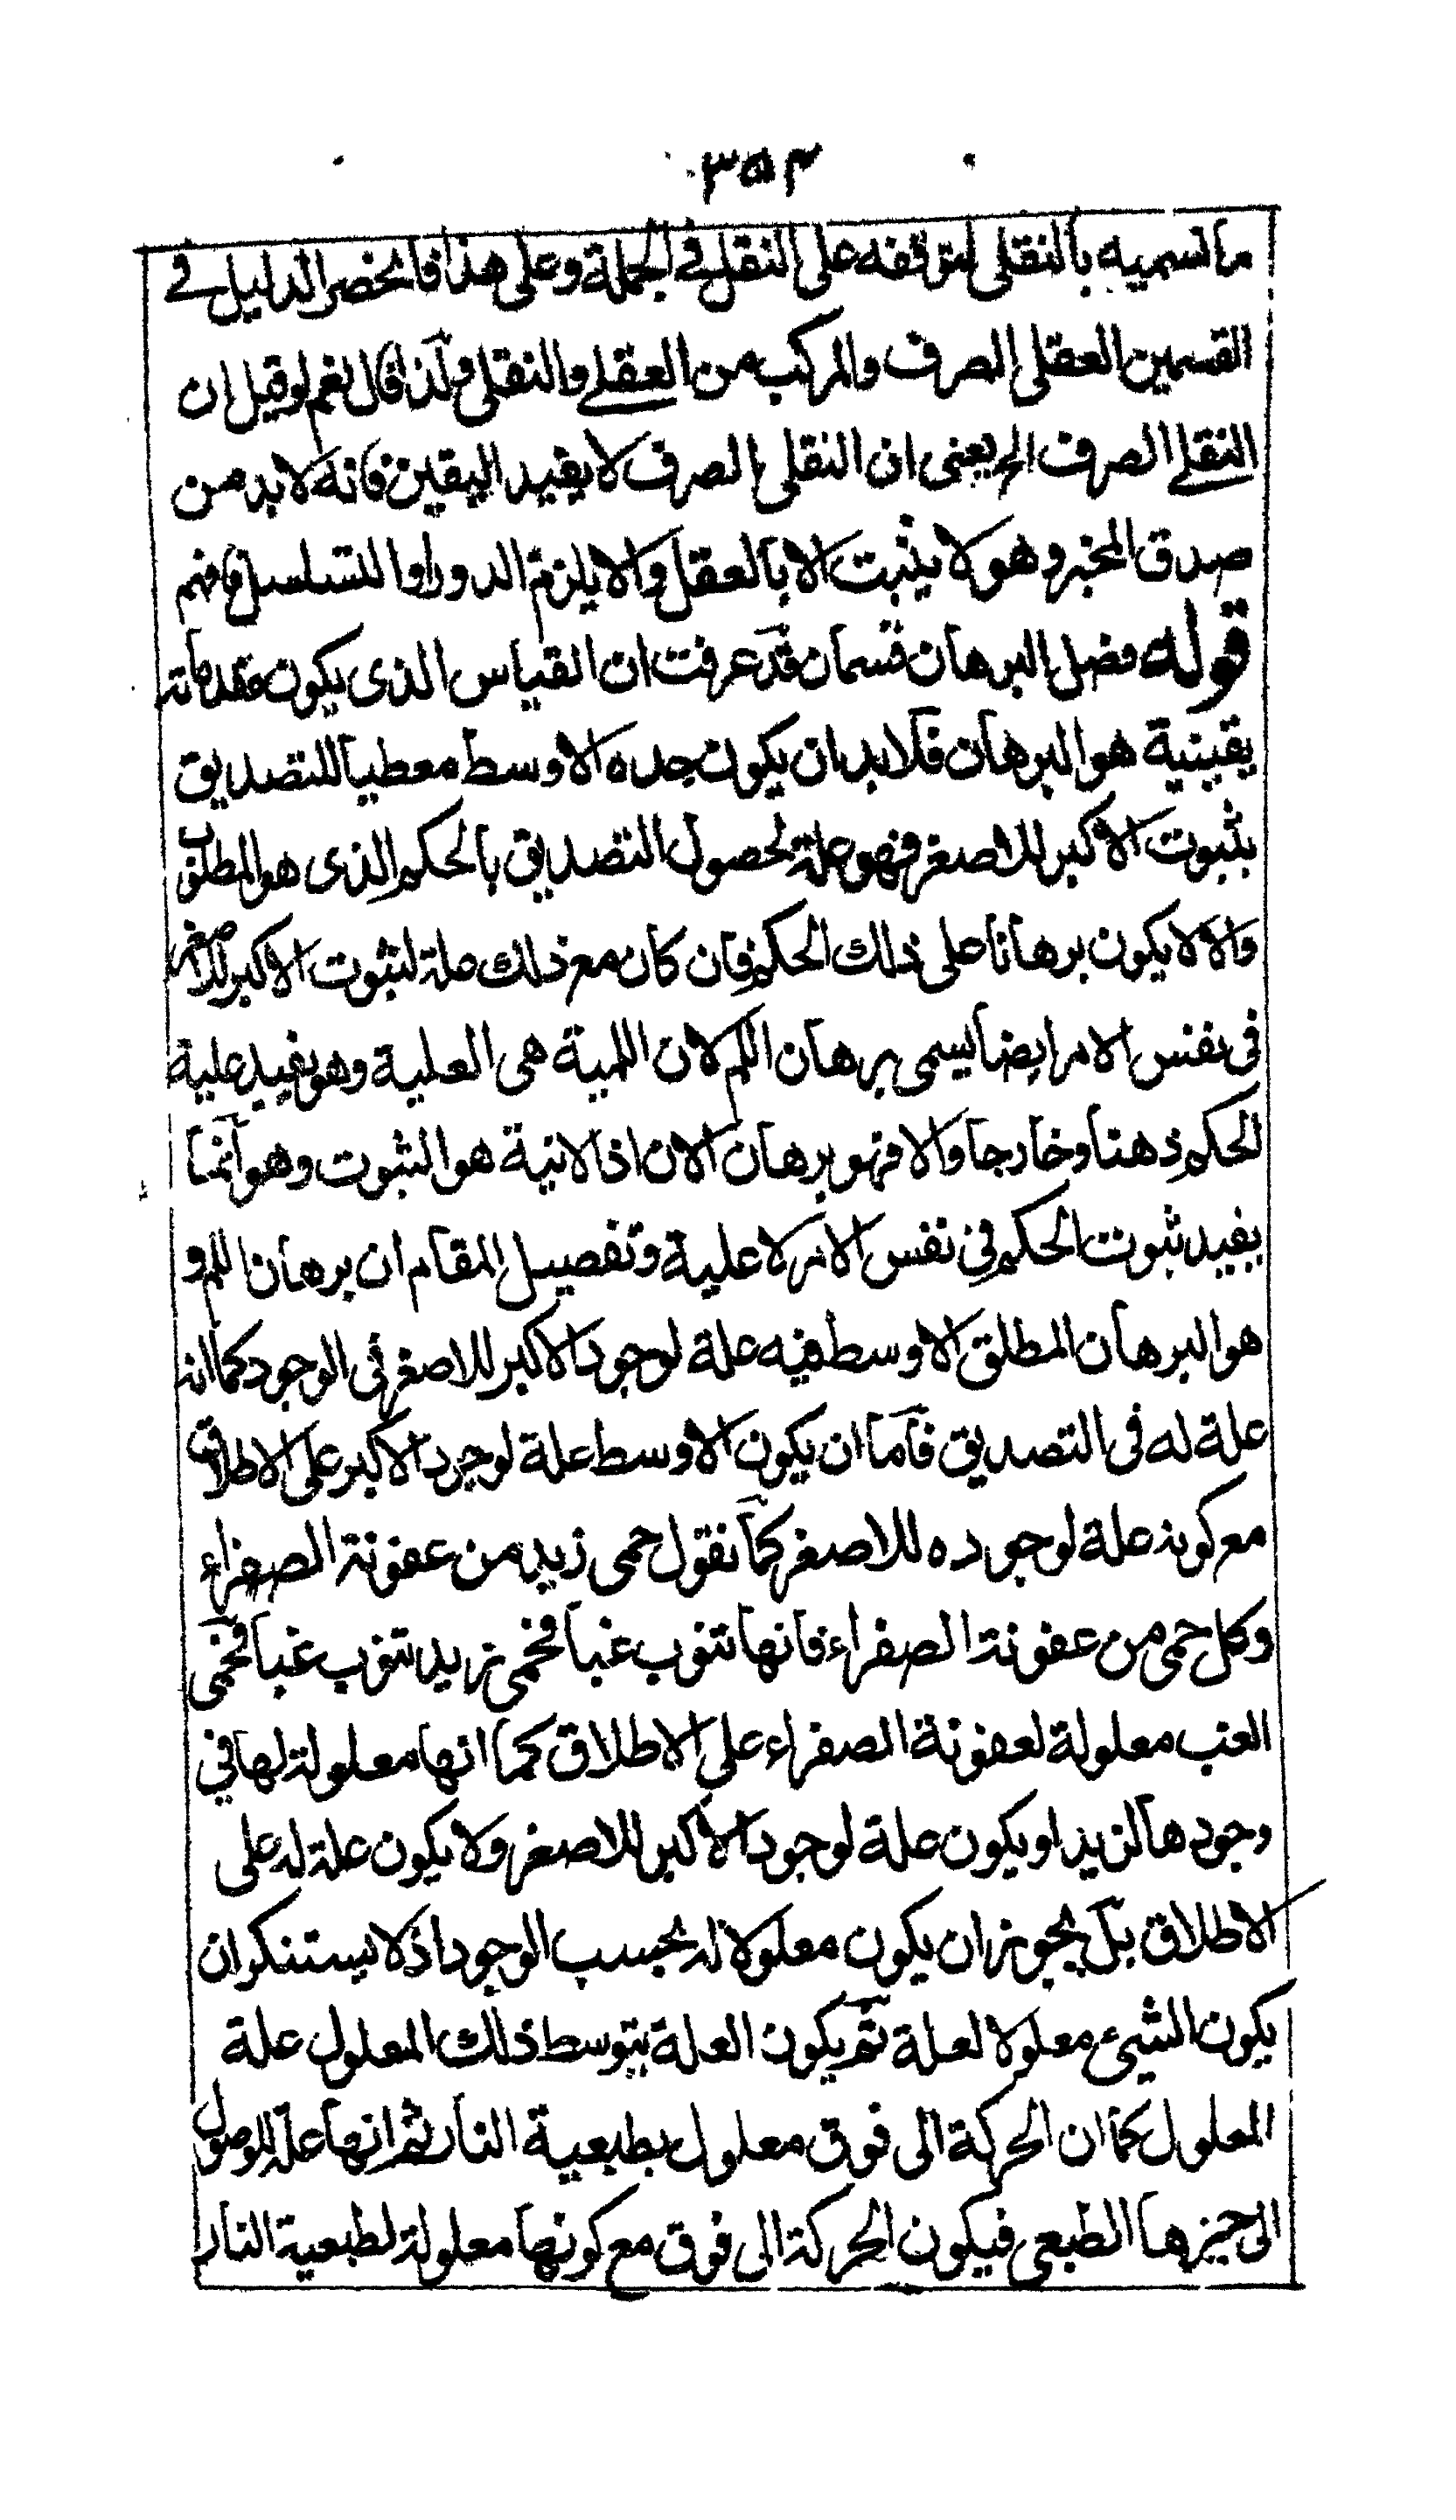 ٣٥٢
ما نسميه بالنقلى لتوقفه على النقل فى الجملة وعلى هذا فانحصر الدليل فى
القسمين العقلى الصرف والمركب من العقلى والنقلى ولذا قال نعم لو قيل ان
النقلى الصرف الخ يعنى ان النقلى الصرف لا يفيد اليقين فانه لا بد من
صدق المخبر وهو لا يثبت الا بالعقل والا يلزم الدور او التسلسل فافهم
قوله فصل البرهان قسمان قد عرفت ان القياس الذى يكون مقدماته
يقينية هو البرهان فلا بد ان يكون حده الاوسط معطيا للتصديق
بثبوت الاكبر للاصغر فهو علة لحصول التصديق بالحكم الذى هو المطلوب
والا لا يكون برهانا على ذلك الحكم فان كان مع ذلك علة لثبوت الاكبر للاصغر
فى نفس الامر ايضا يسمى برهان اللم لان اللمية هى العلية وهو يفيد علية
الحكم ذهنا وخارجا والا فهو برهان الان اذ الانية هو الثبوت وهو انما
يفيد ثبوت الحكم فى نفس الامر لا علية وتفصيل المقام ان برهان اللم و
هو البرهان المطلق الاوسط فيه علة لوجود الاكبر للاصغر فى الوجود كما انه
علة له فى التصديق فاما ان يكون الاوسط علة لوجود الاكبر على الاطلاق
مع كونه علة لوجوده للاصغر كما نقول حمى زيد من عفونة الصفراء
وكل حمى من عفونة الصفراء فانها تنوب غبا فحمى زيد تنوب غبا فحمى
الغب معلولة لعفونة الصفراء على الاطلاق كما انها معلولة لها فى
وجودها لزيد او يكون علة لوجود الاكبر للاصغر ولا يكون علة له على
الاطلاق بل يجوز ان يكون معلولا له بحسب الوجود اذ لا يستنكر ان
يكون الشىء معلولا لعلة ثم يكون العلة بتوسط ذلك المعلول علة
المعلول كما ان الحركة الى فوق معلول بطبعية النار ثم انها علة للوصول
الى حيزها الطبعى فيكون الحركة الى فوق مع كونها معلولة لطبعية النار